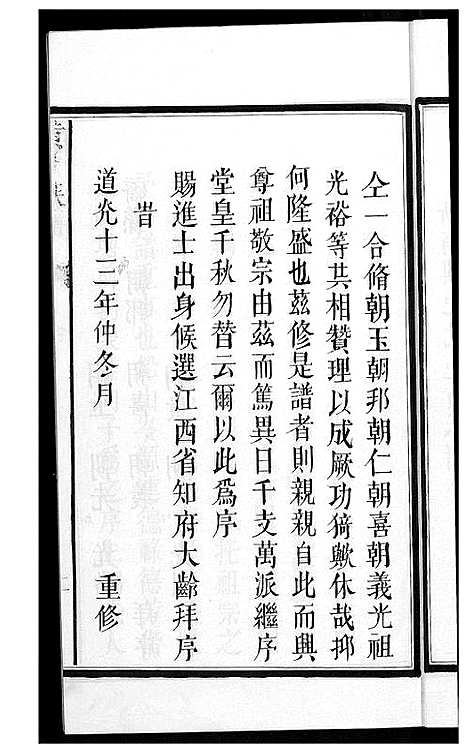 仝一合脩朝玉朝邦朝仁朝喜朝義光祖
光裕等共相贊理以成厥功猗歟休哉抑
何隆盛也茲修是譜者則親親自此而興
尊祖敬宗由茲而篤異日千支萬派繼序
堂皇千秋勿替云爾以此爲序
賜進士出身候選江西省知府大齡拜序
旹
道光十三年仲冬月　重修